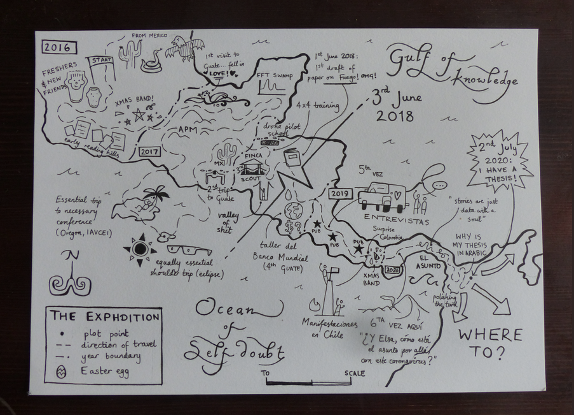 2016
FROM MEXICO
START
FRESHERS
& NEW
FRIENDS
XMAS BAND!
early reading hills
2017
APM
1st visit to
Guate... fell in
LOVE!
FFT SWAMP
1st June 2018:
1st draft of
paper on Fuego! OMG!
4x4 training
drone pilot
school
3rd June
2018
Gulf of
knowledge
2nd July
2020:
I HAVE A
THESIS!
MX
FINCA
SCOUT
2nd trip
to Guate
valley
of
shit
Essential trip
to necessary
conference
(Oregon, IAVCEI)
equally essential
shoulder trip (eclipse)
taller del
Banco Mundial
(4th GUATE)
2019
5th
VEZ
ENTREVISTAS
"stories are just
data with a
soul"
PUB
PUB
PUB
Surprise
Colombia
XMAS
BAND
2020
EL
ASUNTO
WHY IS
MY THESIS
IN ARABIC
polishing
the turd
Manifestaciones
en Chile
6TA VEZ AQUÍ
"¿Y Elsa, como está
el asunto por allá
con este coronavirus?"
WHERE
TO?
N
THE EXPHDITION
plot point
direction of travel
year boundary
Easter egg
Ocean
of
Self doubt
TO SCALE